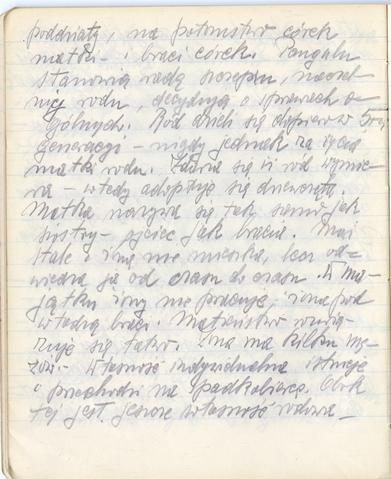 poddziały, na potomstwo córek
matki - i braci córek. Pangulu
stanowią radę szczepu, naczel-
nicy rodu, decydują o sprawach o-
gólnych. Ród dzieli się dopiero w 5tej
generacji - nigdy jednak za życia
matki rodu. Zdarza się iż ród wymie-
ra - wtedy adoptuje się dziewczęta.
Matka nazywa się tak samo jak
siostry - ojciec jak bracia. Mąż
stale z żoną nie mieszka, lecz od-
wiedza ją od czasu do czasu. W ma-
jątku żony nie pracuje, żona pod
władzą braci. Małżeństwo rozwią-
zuje się łatwo. Żona ma kilku mę-
żów. - Własność indywidualna istnieje
i przechodzi na spadkobierców. Obok
tej jest jeszcze własność rodowa -